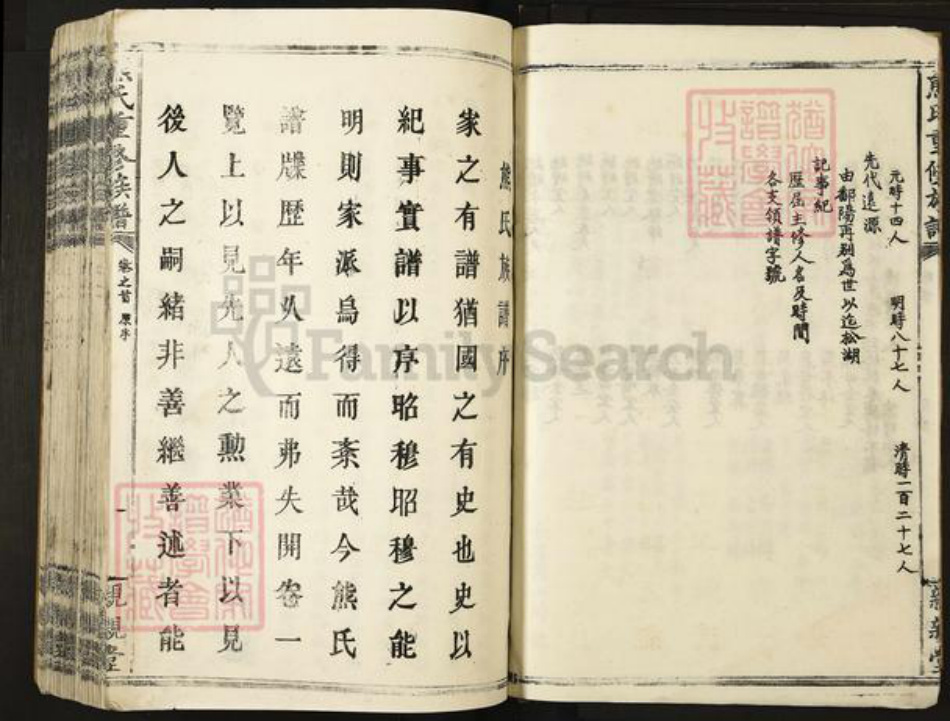 熊氏重修族譜
元時十四人 明時八十七人 清時一百二十七人
先代遠源
由鄱陽再別為世以迄松湖
記事紀
歷屆主修人名及時間
各支領譜字號
熊氏族譜序
家之有譜猶國之有史也史以
紀事實譜以序昭穆昭穆之能
明則家派烏得而紊哉今熊氏
譜牒歷年久遠而弗失開卷一
覽上以見先人之勳業下以見
後人之嗣緒非善繼善述者能
氏重修族譜
卷之首 原序
一
親親堂
FamilySearch